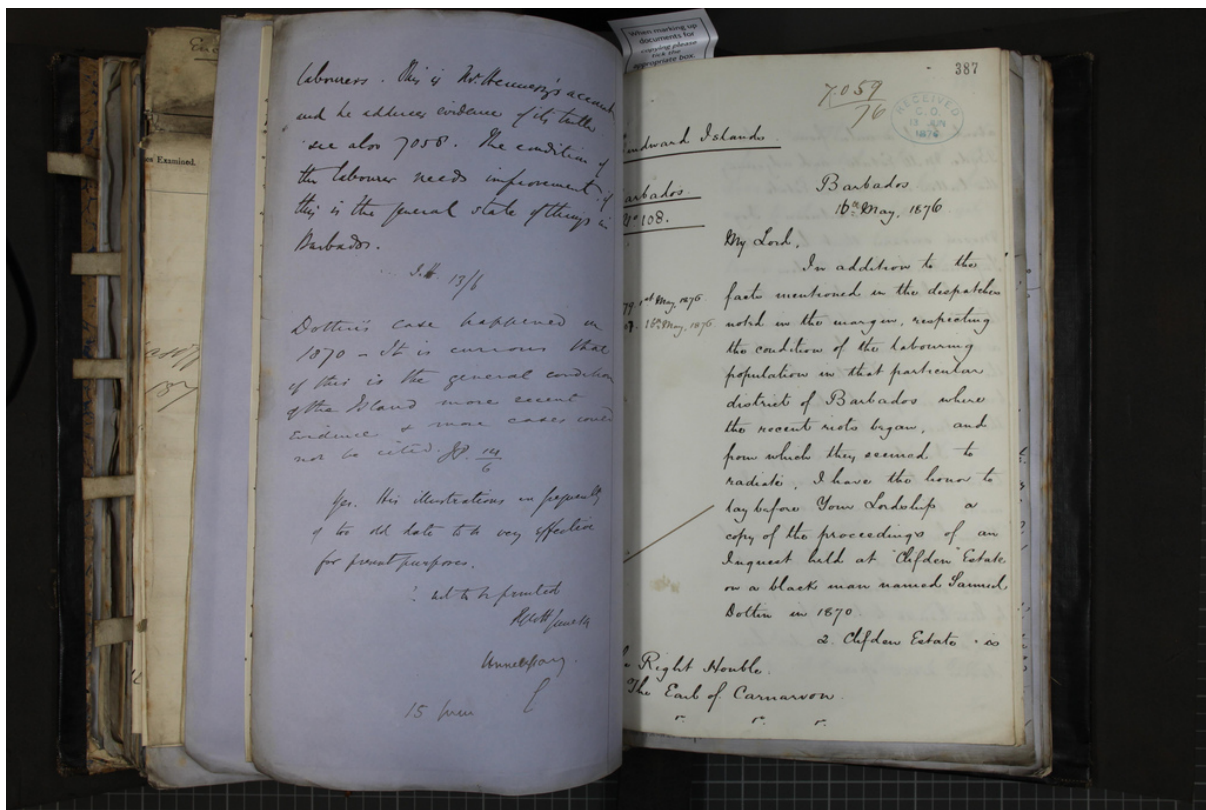 When marking up
documents for
copying please
tick the
appropriate box.
es Examined.
labourers. This is Mr. Hennessy's account
and he adduces evidence of its truth.
see also 7058. The condition of
the labourer needs improvement, if
this is the general state of things in
Barbados.
13/6
Dottin's case happened in
1870 - It is curious that
if this is the general condition
of the Island more recent
evidence & more cases could
not be cited. 14/6
Yes. His illustrations are frequently
of too old date to be very effective
for present purposes.
not to be printed
June 14
Unnecessary.
C
15 June
387
7059
76
RECEIVED
C.O.
13 JUN
1876
indward Islands
arbados.
No 108.
79. 1st May, 1876.
07. 16th May, 1876.
Barbados.
16th May, 1876
My Lord,
In addition to the
facts mentioned in the despatches
noted in the margin, respecting
the condition of the labouring
population in that particular
district of Barbados where
the recent riots began, and
from which they seemed to
radiate, I have the honor to
lay before Your Lordship a
copy of the proceedings of an
Inquest held at "Clifden" Estate
on a black man named Samuel
Dottin in 1870.
2. Clifden Estate is
Right Honble.
The Earl of Carnarvon.